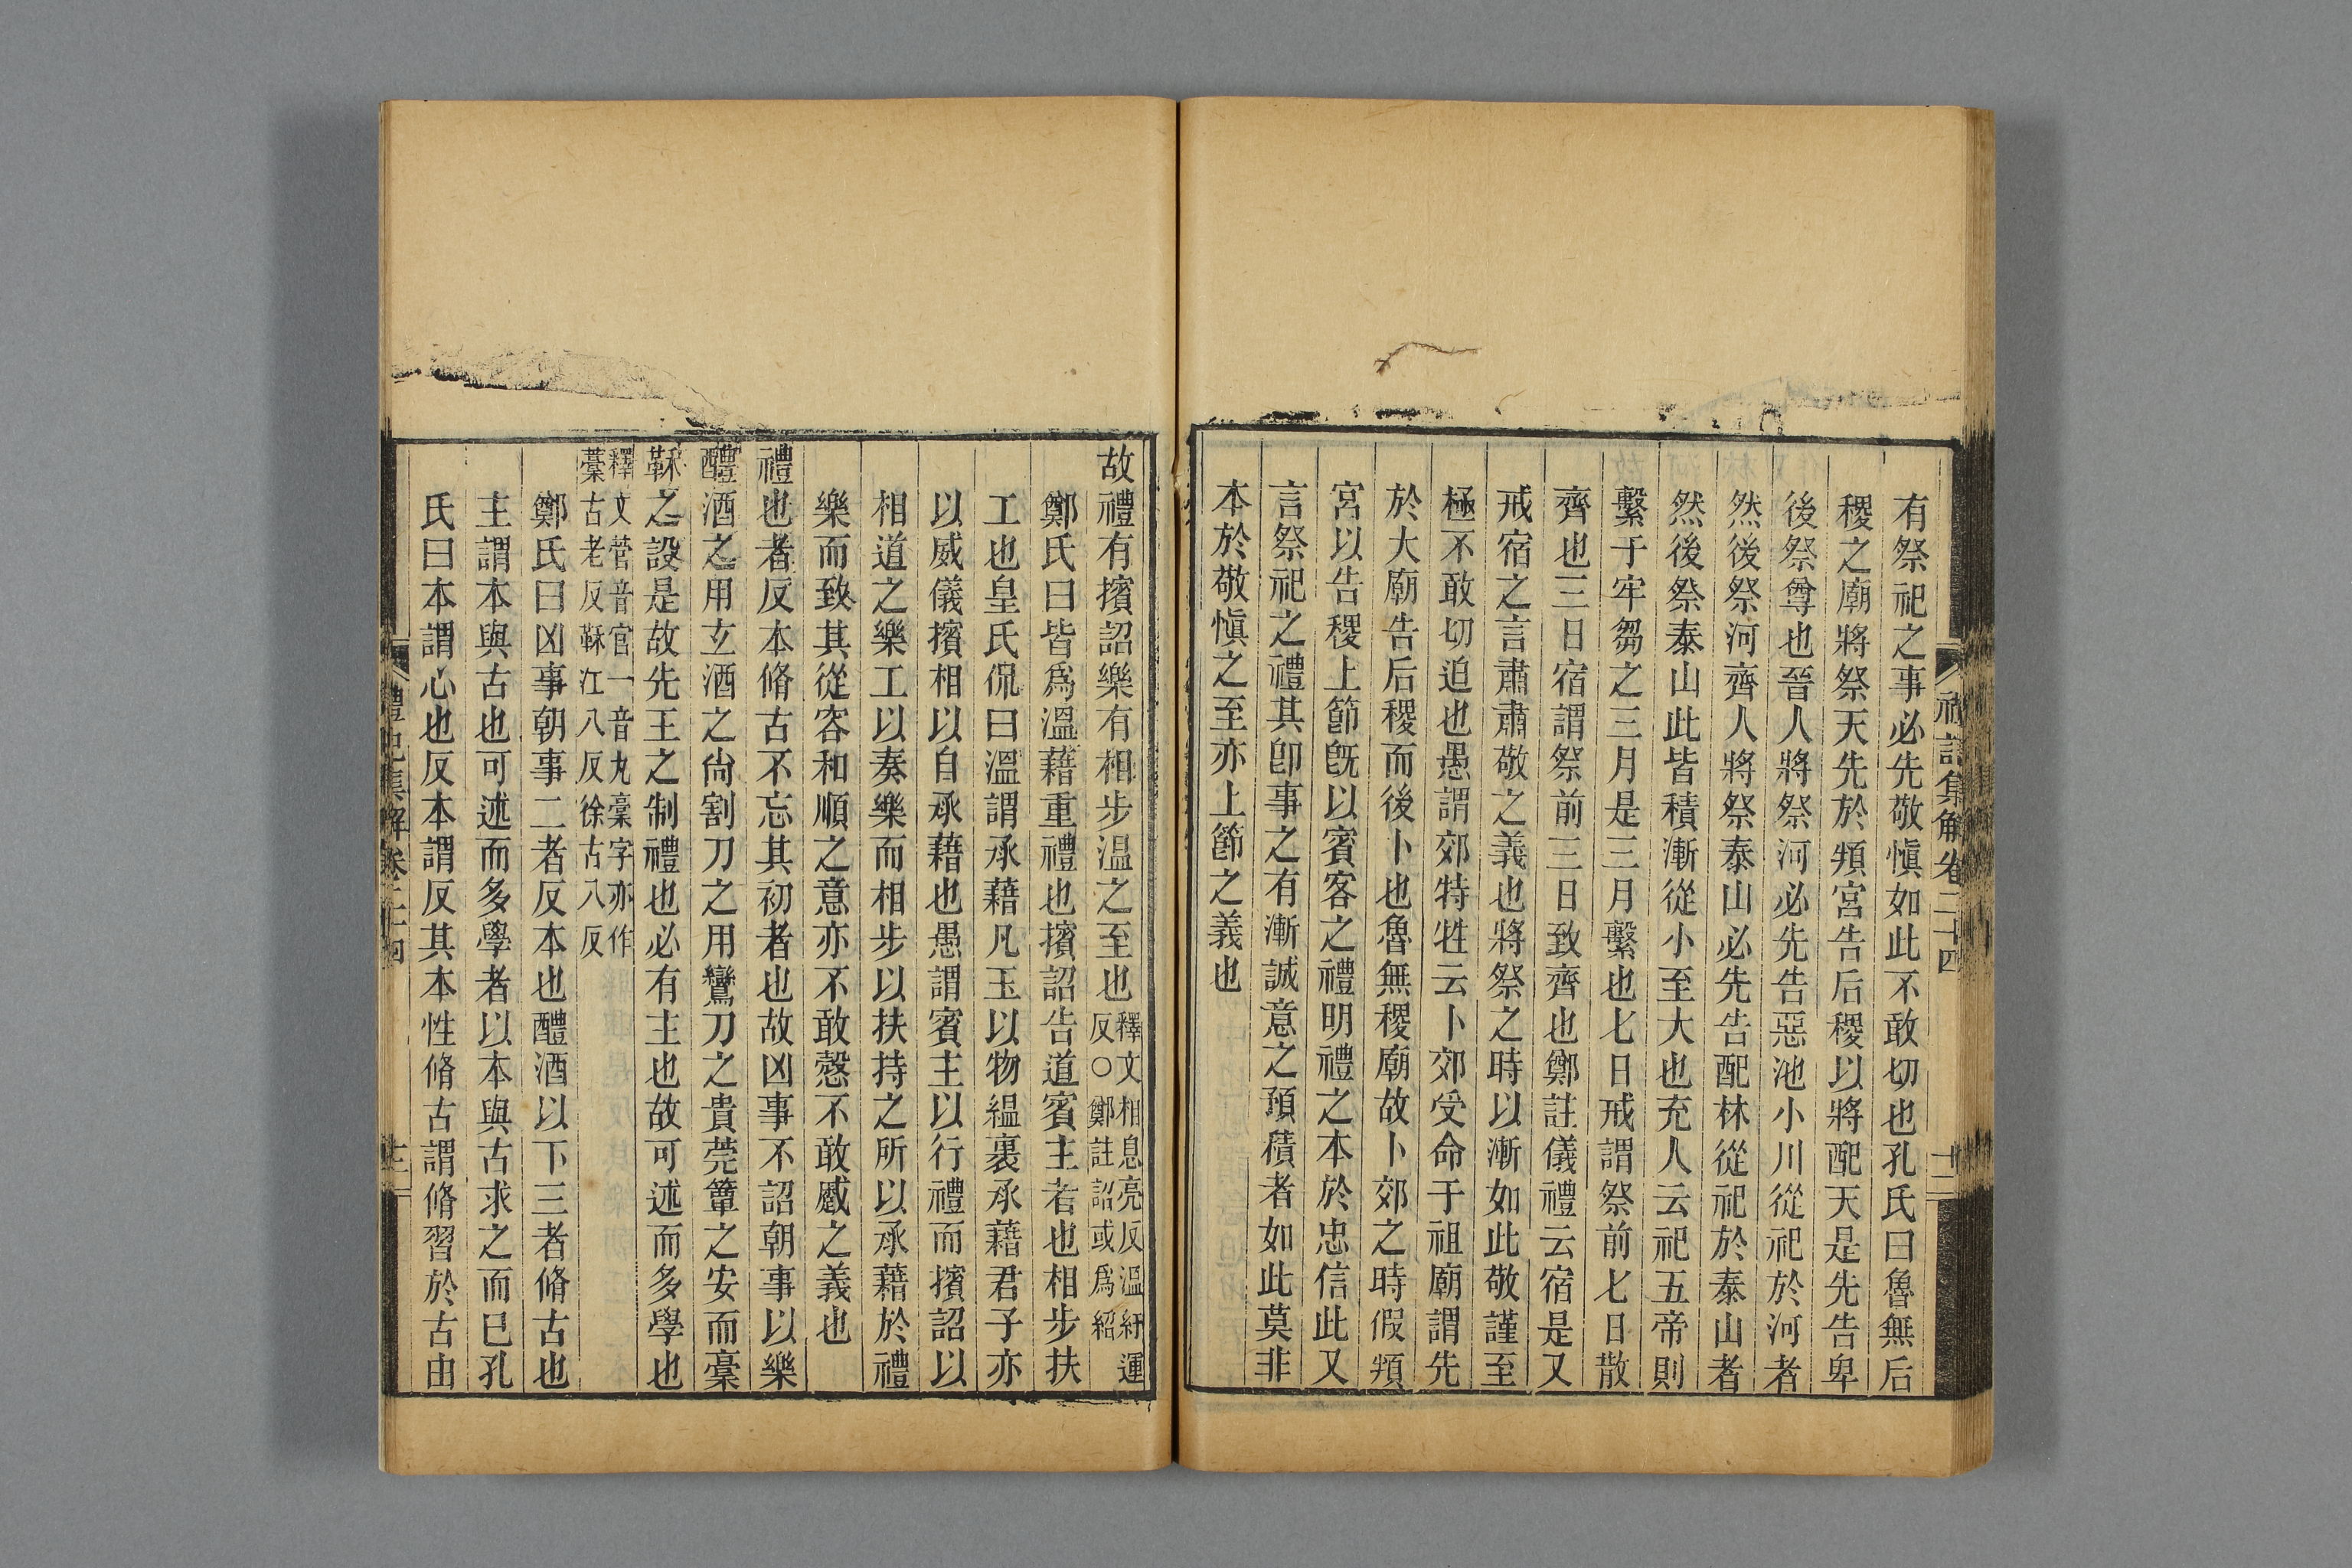 有祭祀之事必先敬愼如此不敢切也孔氏曰魯無后
稷之廟將祭天先於頖宮告后稷以將配天是先告卑
後祭尊也晉人將祭河必先告惡池小川從祀於河者
然後祭河齊人將祭泰山必先告配林從祀於泰山者
然後祭泰山此皆積漸從小至大也充人云祀五帝則
繫于牢芻之三月是三月繫也七日戒謂祭前七日散
齊也三日宿謂祭前三日致齊也鄭註儀禮云宿是又
戒宿之言肅肅敬之義也將祭之時以漸如此敬謹至
極不敢切迫也愚謂郊特牲云卜郊受命于祖廟謂先
於大廟告后稷而後卜也魯無稷廟故卜郊之時假頖
宮以告稷上節旣以賓客之禮明禮之本於忠信此又
言祭祀之禮其卽事之有漸誠意之預積者如此莫非
本於敬愼之至亦上節之義也
禮記集解卷二十四
十二
故禮有擯詔樂有相步温之至也釋文相息亮反溫紆運
反○鄭註詔或爲紹
鄭氏曰皆爲溫藉重禮也擯詔告道賓主者也相步扶
工也皇氏侃曰溫謂承藉凡玉以物縕裹承藉君子亦
以威儀擯相以自承藉也愚謂賓主以行禮而擯詔以
相道之樂工以奏樂而相步以扶持之所以承藉於禮
樂而致其從容和順之意亦不敢愨不敢蹙之義也
禮也者反本脩古不忘其初者也故凶事不詔朝事以樂
醴酒之用玄酒之尙割刀之用鸞刀之貴莞簟之安而稾
鞂之設是故先王之制禮也必有主也故可述而多學也
釋文菅音官一音丸稾字亦作
藁古老反鞂江八反徐古八反
鄭氏曰凶事朝事二者反本也醴酒以下三者脩古也
主謂本與古也可述而多學者以本與古求之而已孔
氏曰本謂心也反本謂反其本性脩古謂脩習於古由
禮記集解卷二十四
十三